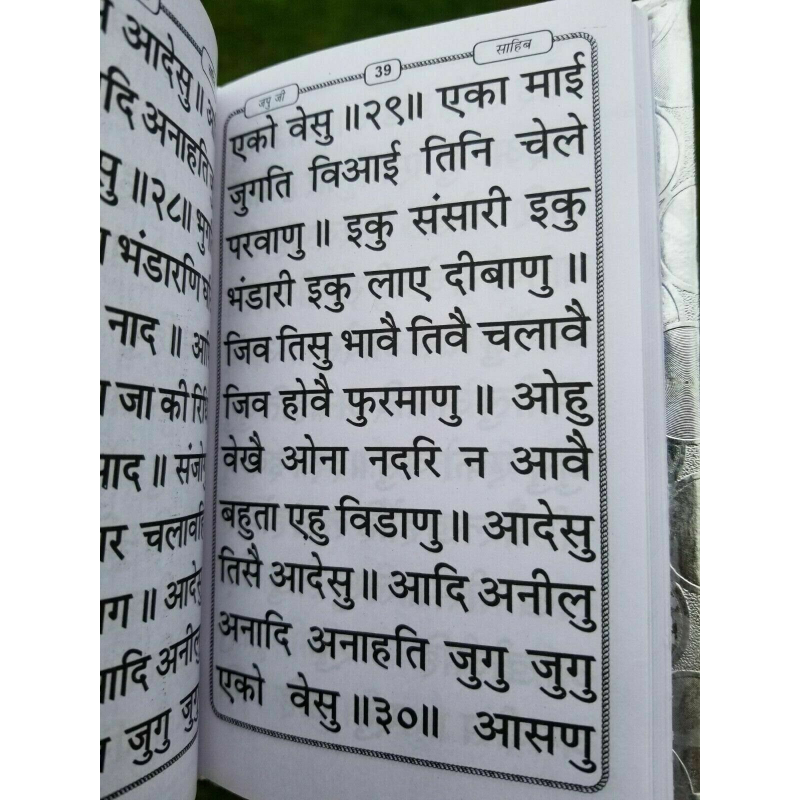 आदेसु ॥
दि अनाहति
सु ॥२८॥ भुग
भंडारणि
नाद ॥ आ
जा की रिधि
ाद ॥ संजो
र चलावहि
ग ॥ आदे
ादि अनीलु
जुगु जुगु
जपु जी 39 साहिब
एको वेसु ॥२९॥ एका माई
जुगति विआई तिनि चेले
परवाणु ॥ इकु संसारी इकु
भंडारी इकु लाए दीबाणु ॥
जिव तिसु भावै तिवै चलावै
जिव होवै फुरमाणु ॥ ओहु
वेखै ओना नदरि न आवै
बहुता एहु विडाणु ॥ आदेसु
तिसै आदेसु ॥ आदि अनीलु
अनादि अनाहति जुगु जुगु
एको वेसु ॥३०॥ आसणु